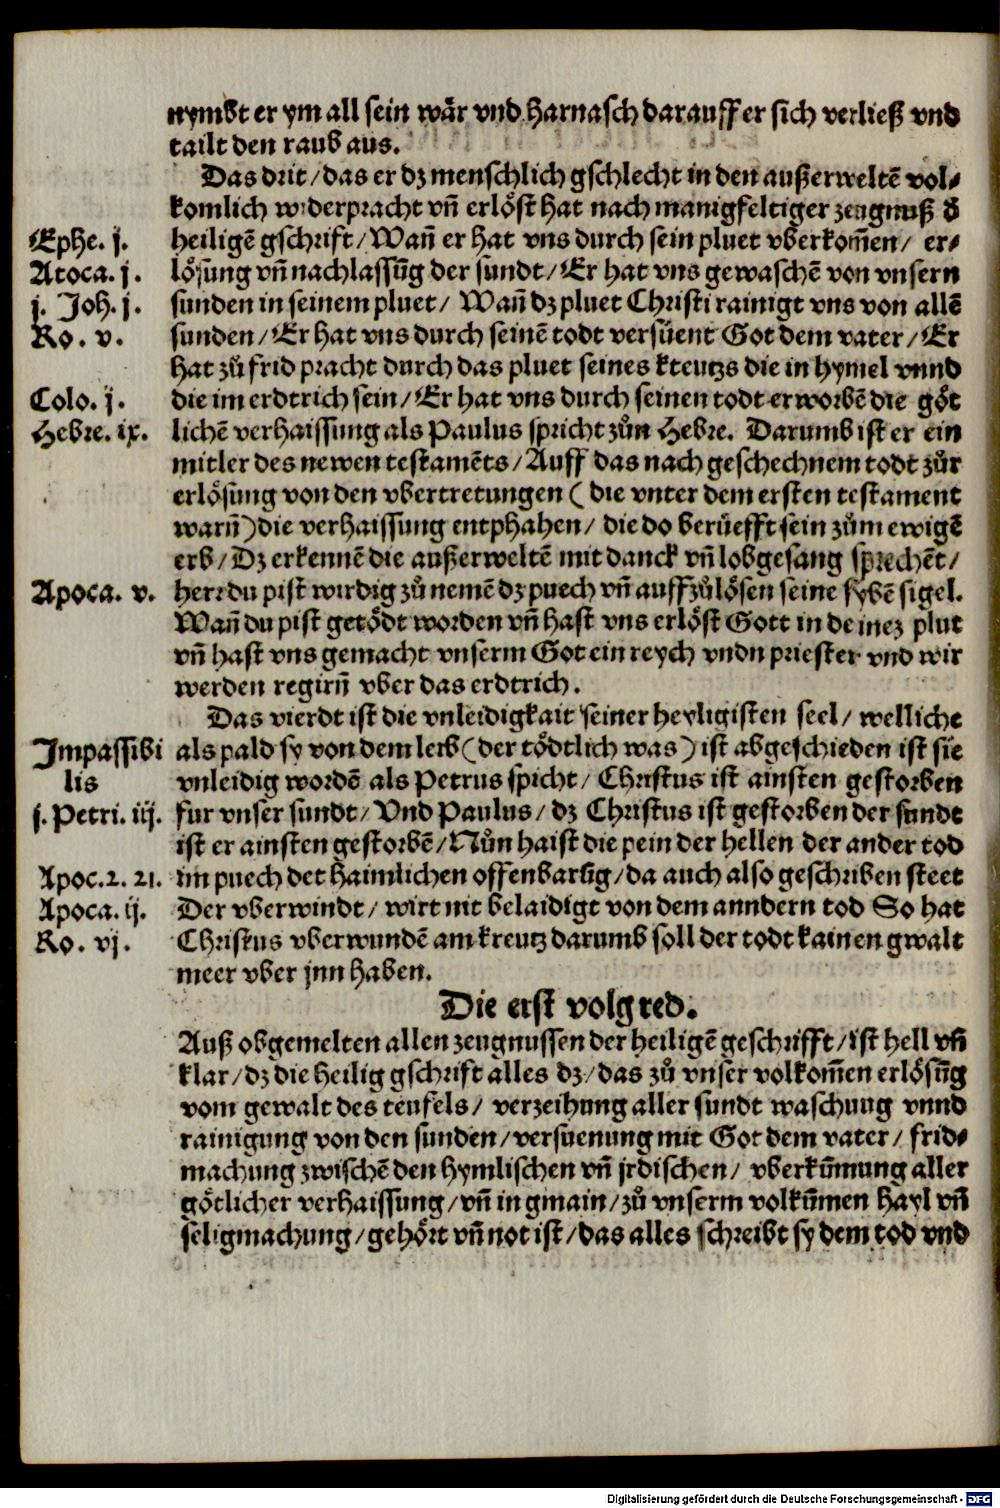 nymbt er ym all sein wår vnd harnasch darauff er sich verließ vnd
tailt den raub aus.
Das drit/ das er dz menschlich gschlecht in den außerweltē vol⸗
komlich widerpracht vn̄ erlöst hat nach manigfeltiger zeugnuß d̄
Ephe. j.
heiligē gschrift/ Wan̄ er hat vns durch sein pluet vberkom̄en/ er⸗
Atoca. j.
lösung vn̄ nachlassūg der sundt/ Er hat vns gewaschē von vnsern
j. Joh. j.
sunden in seinem pluet/ Wan̄ dz pluet Christi rainigt vns von allē
Ro. v.
sunden/ Er hat vns durch seinē todt versüent Got dem vater/ Er
hat zů frid pracht durch das pluet seines kteutzs die in hymel vnnd
Colo. j.
die im erdtrich sein/ Er hat vns durch seinen todt erworbē die göt
Hebre. ix.
lichē verhaissung als Paulus spricht zůn Hebre. Darumb ist er ein
mitler des newen testamēts/ Auff das nach geschechnem todt zůr
erlösung von den vbertretungen (die vnter dem ersten testament
warn̄) die verhaissung entphahen/ die do berüefft sein zům ewigē
erb/ Dz erkennē die außerweltē mit danck vn̄ lobgesang sprechēt/
Apoca. v.
herr du pist wirdig zů nemē dz puech vn̄ auffzůlösen seine sybē sigel.
Wan̄ du pist getödt worden vn̄ hast vns erlöst Gott in deinez plut
vn̄ hast vns gemacht vnserm Got ein reych vndn priester vnd wir
werden regirn̄ vber das erdtrich.
Das vierdt ist die vnleidigkait seiner heyligisten seel/ welliche
Impassibi
als pald sy von dem leib (der tödtlich was) ist abgeschieden ist sie
lis
vnleidig wordē als Petrus spicht/ Christus ist ainsten gestorben
j. Petri. iij.
fur vnser sundt/ Vnd Paulus/ dz Christus ist gestorben der sundt
ist er ainsten gestorbē/ Nůn haist die pein der hellen der ander tod
Apoc. 2. 21.
im puech det haimlichen offenbarūg/ da auch also geschriben steet
Apoca. ij.
Der vberwindt/ wirt nit belaidigt von dem anndern tod So hat
Ro. vj.
Christus vberwundē am kreutz darumb soll der todt kainen gwalt
meer vber jnn haben.
Die erst volg red.
Auß obgemelten allen zeugnussen der heiligē geschrifft/ ist hell vn̄
klar/ dz die heilig gschrift alles dz/ das zů vnser volkom̄en erlösūg
vom gewalt des teufels/ verzeihung aller sundt waschung vnnd
rainigung von den sunden/ versüenung mit Got dem vater/ frid⸗
machung zwischē den hymlischen vn̄ jrdischen/ vberkūmung aller
götlicher verhaissung/ vn̄ in gmain/ zů vnserm volkūmen hayl vn̄
seligmachung/ gehört vn̄ not ist/ das alles schreibt sy dem tod vnd
Digitalisierung gefördert durch die Deutsche Forschungsgemeinschaft - DFG